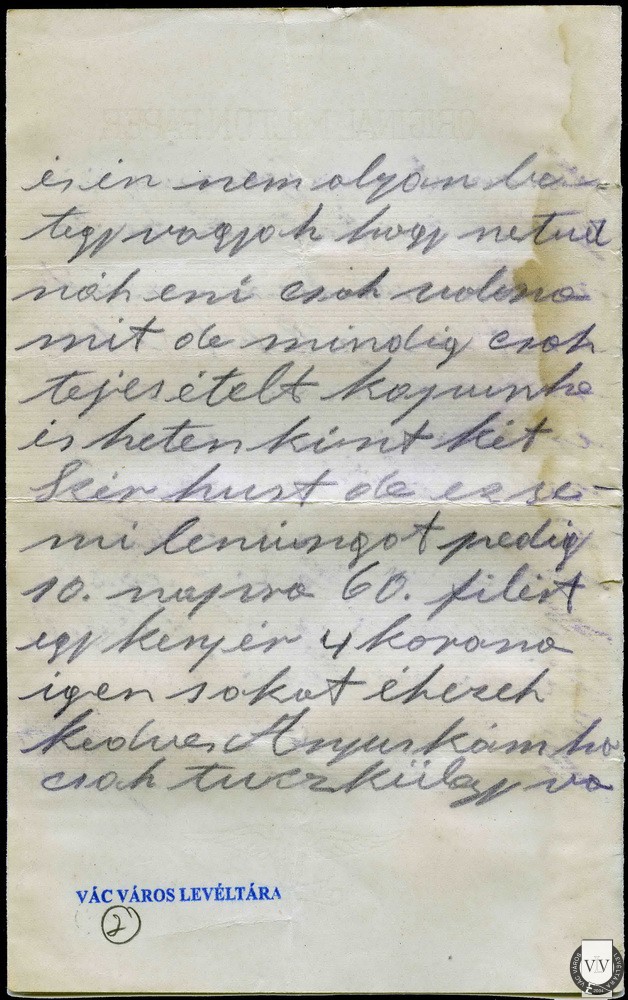 és én nem olyan be-
tegy vagyok hogy netud
nák eni csak volna
mit de mindig csak
tejes ételt kapunk
és hetenkint két
szer hust de ez se-
mi lemingot pedig
10. napra 60. filért
egy kenyér 4 korona
igen sokat éhezek
kedves Anyuskám ha
csak tucz küly va
VÁC VÁROS LEVÉLTÁRA
2
VÁC VÁROS LEVÉLTÁRA